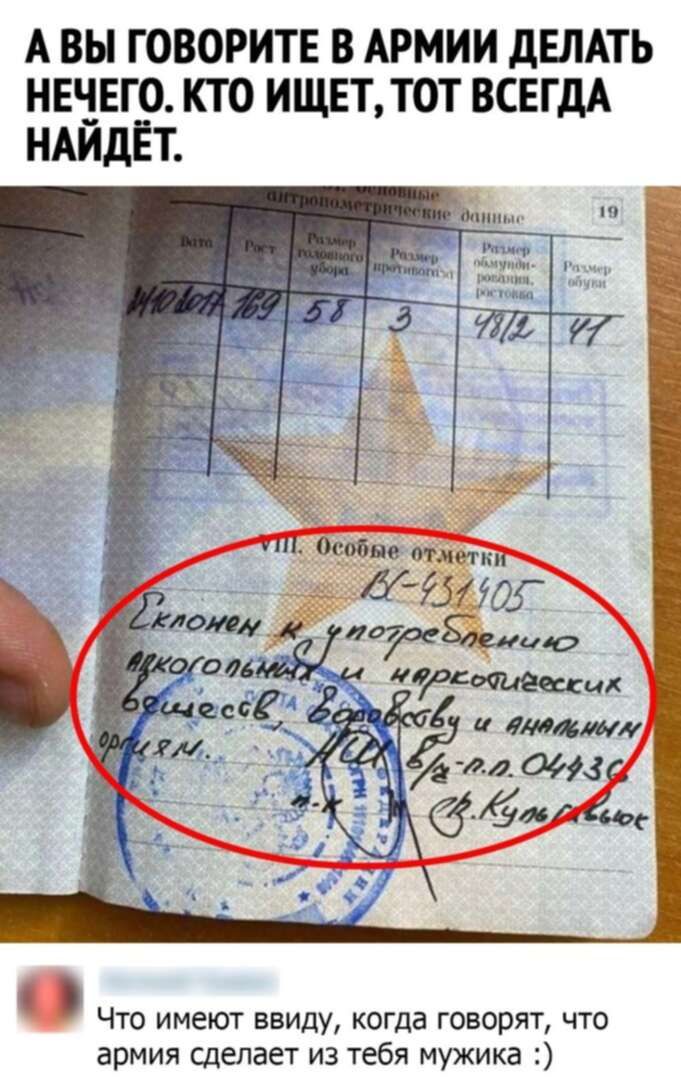 А ВЫ ГОВОРИТЕ В АРМИИ ДЕЛАТЬ
НЕЧЕГО. КТО ИЩЕТ, ТОТ ВСЕГДА
НАЙДЁТ.
основные
антропометрические данные
19
Дата Рост Размер головного убора Размер противогаза Размер обмунди-рования, ростовка Размер обуви
24.10.2017 169 58 3 48/2 41
VIII. Особые отметки
ВС-431405
Склонен к употреблению
алкогольных и наркотических
веществ, воровству и анальным
оргиям. НШ в/ч-п.п. 04436
п-к
Что имеют ввиду, когда говорят, что
армия сделает из тебя мужика :)